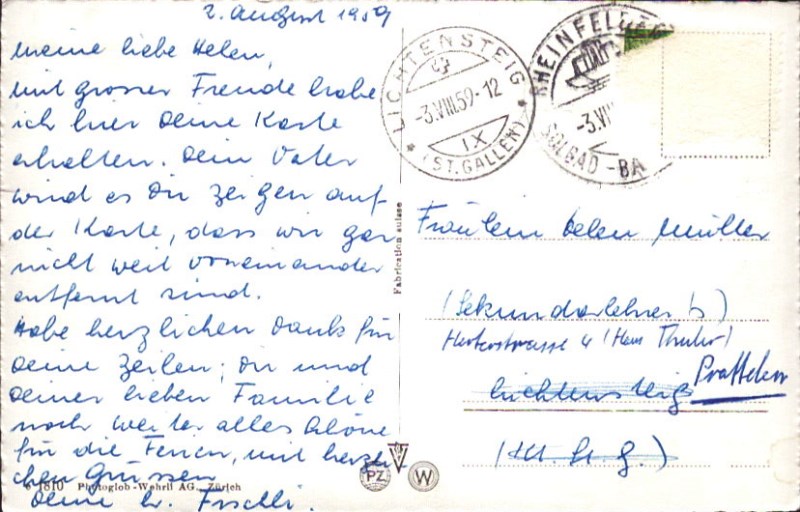 2. August 1959
Meine liebe Helen,
mit grosser Freude habe
ich hier Deine Karte
erhalten. Dein Vater
wird es Dir zeigen auf
der Karte, dass wir gar
nicht weit voneinander
entfernt sind.
Habe herzlichen Dank für
Deine Zeilen; Dir und
Deiner lieben Familie
noch weiter alles Schöne
für die Ferien, mit herzli
chen Grüssen
Deine
Fischli.
LICHTENSTEIG
-3.VIII.59-12
IX
* (ST. GALLEN) *
RHEINFELDEN
-3.VIII
SOLBAD - BA
Fabrication suisse
Fräulein Helen Müller
(Sekundarlehrers)
4 (Haus
Lichtensteig Pratteln
(Kt. St. G.)
PZ W
1810 Photoglob-Wehrli AG., Zürich